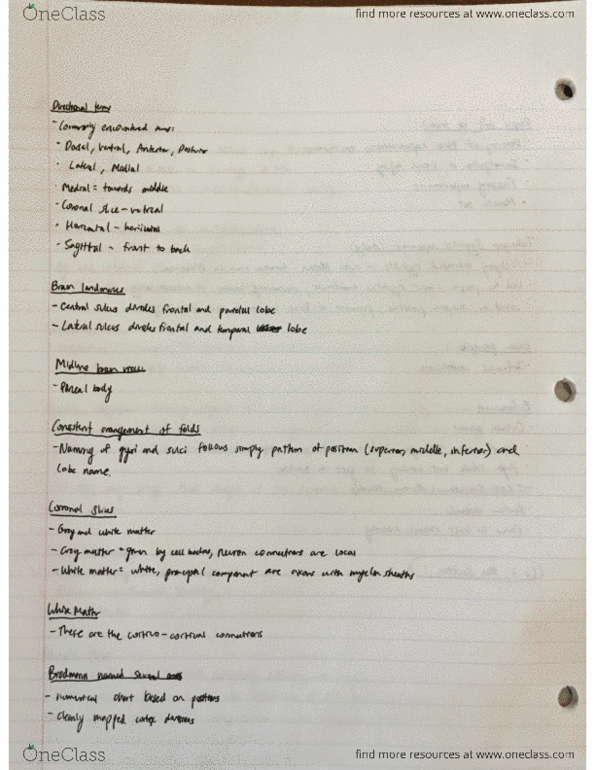 OneClass
find more resources at www.oneclass.com
Directional terms
- Commonly encountered
- Dorsal, Ventral, Anterior, Posterior
· Lateral, Medial
· Medial = towards middle
- Coronal slice - vertical
• Horizontal - horizontal
- Sagittal - front to back
Brain landmarks
- Central sulcus divides frontal and parietal lobe
- Lateral sulcus divides frontal and temporal lobe
Midline brain
- Pineal body
Consistent arrangement of folds
- Naming of gyri and sulci follows simply pattern of position (superior, middle, inferior) and
lobe name.
Coronal Slices
- Grey and white matter
- Grey matter = given by cell bodies, neuron connections are local
- White matter = white, principal component are axons with myelin sheaths
White Matter
- These are the cortico-cortical connections
Brodmann named several areas
- numerical chart based on positions
- clearly mapped cortex divisions
OneClass
find more resources at www.oneclass.com